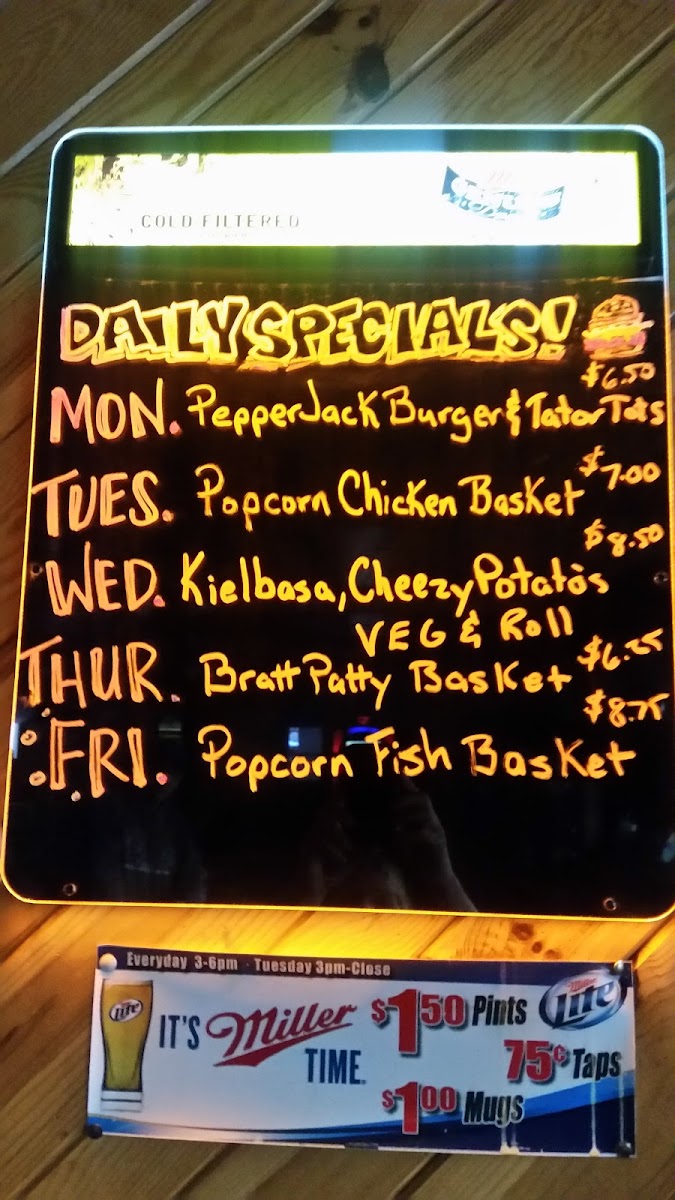 COLD FILTERED
DAILY SPECIALS!
$6.50
MON. PepperJack Burger & Tator Tots
$7.00
TUES. Popcorn Chicken Basket
$8.50
WED. Kielbasa, Cheezy Potato's
VEG & Roll
THUR. Bratt Patty Basket
$8.75
FRI. Popcorn Fish Basket
Everyday 3-6pm - Tuesday 3pm-Close
Lite IT'S Miller TIME.
$1.50 Pints Miller Lite
75¢ Taps
$1.00 Mugs